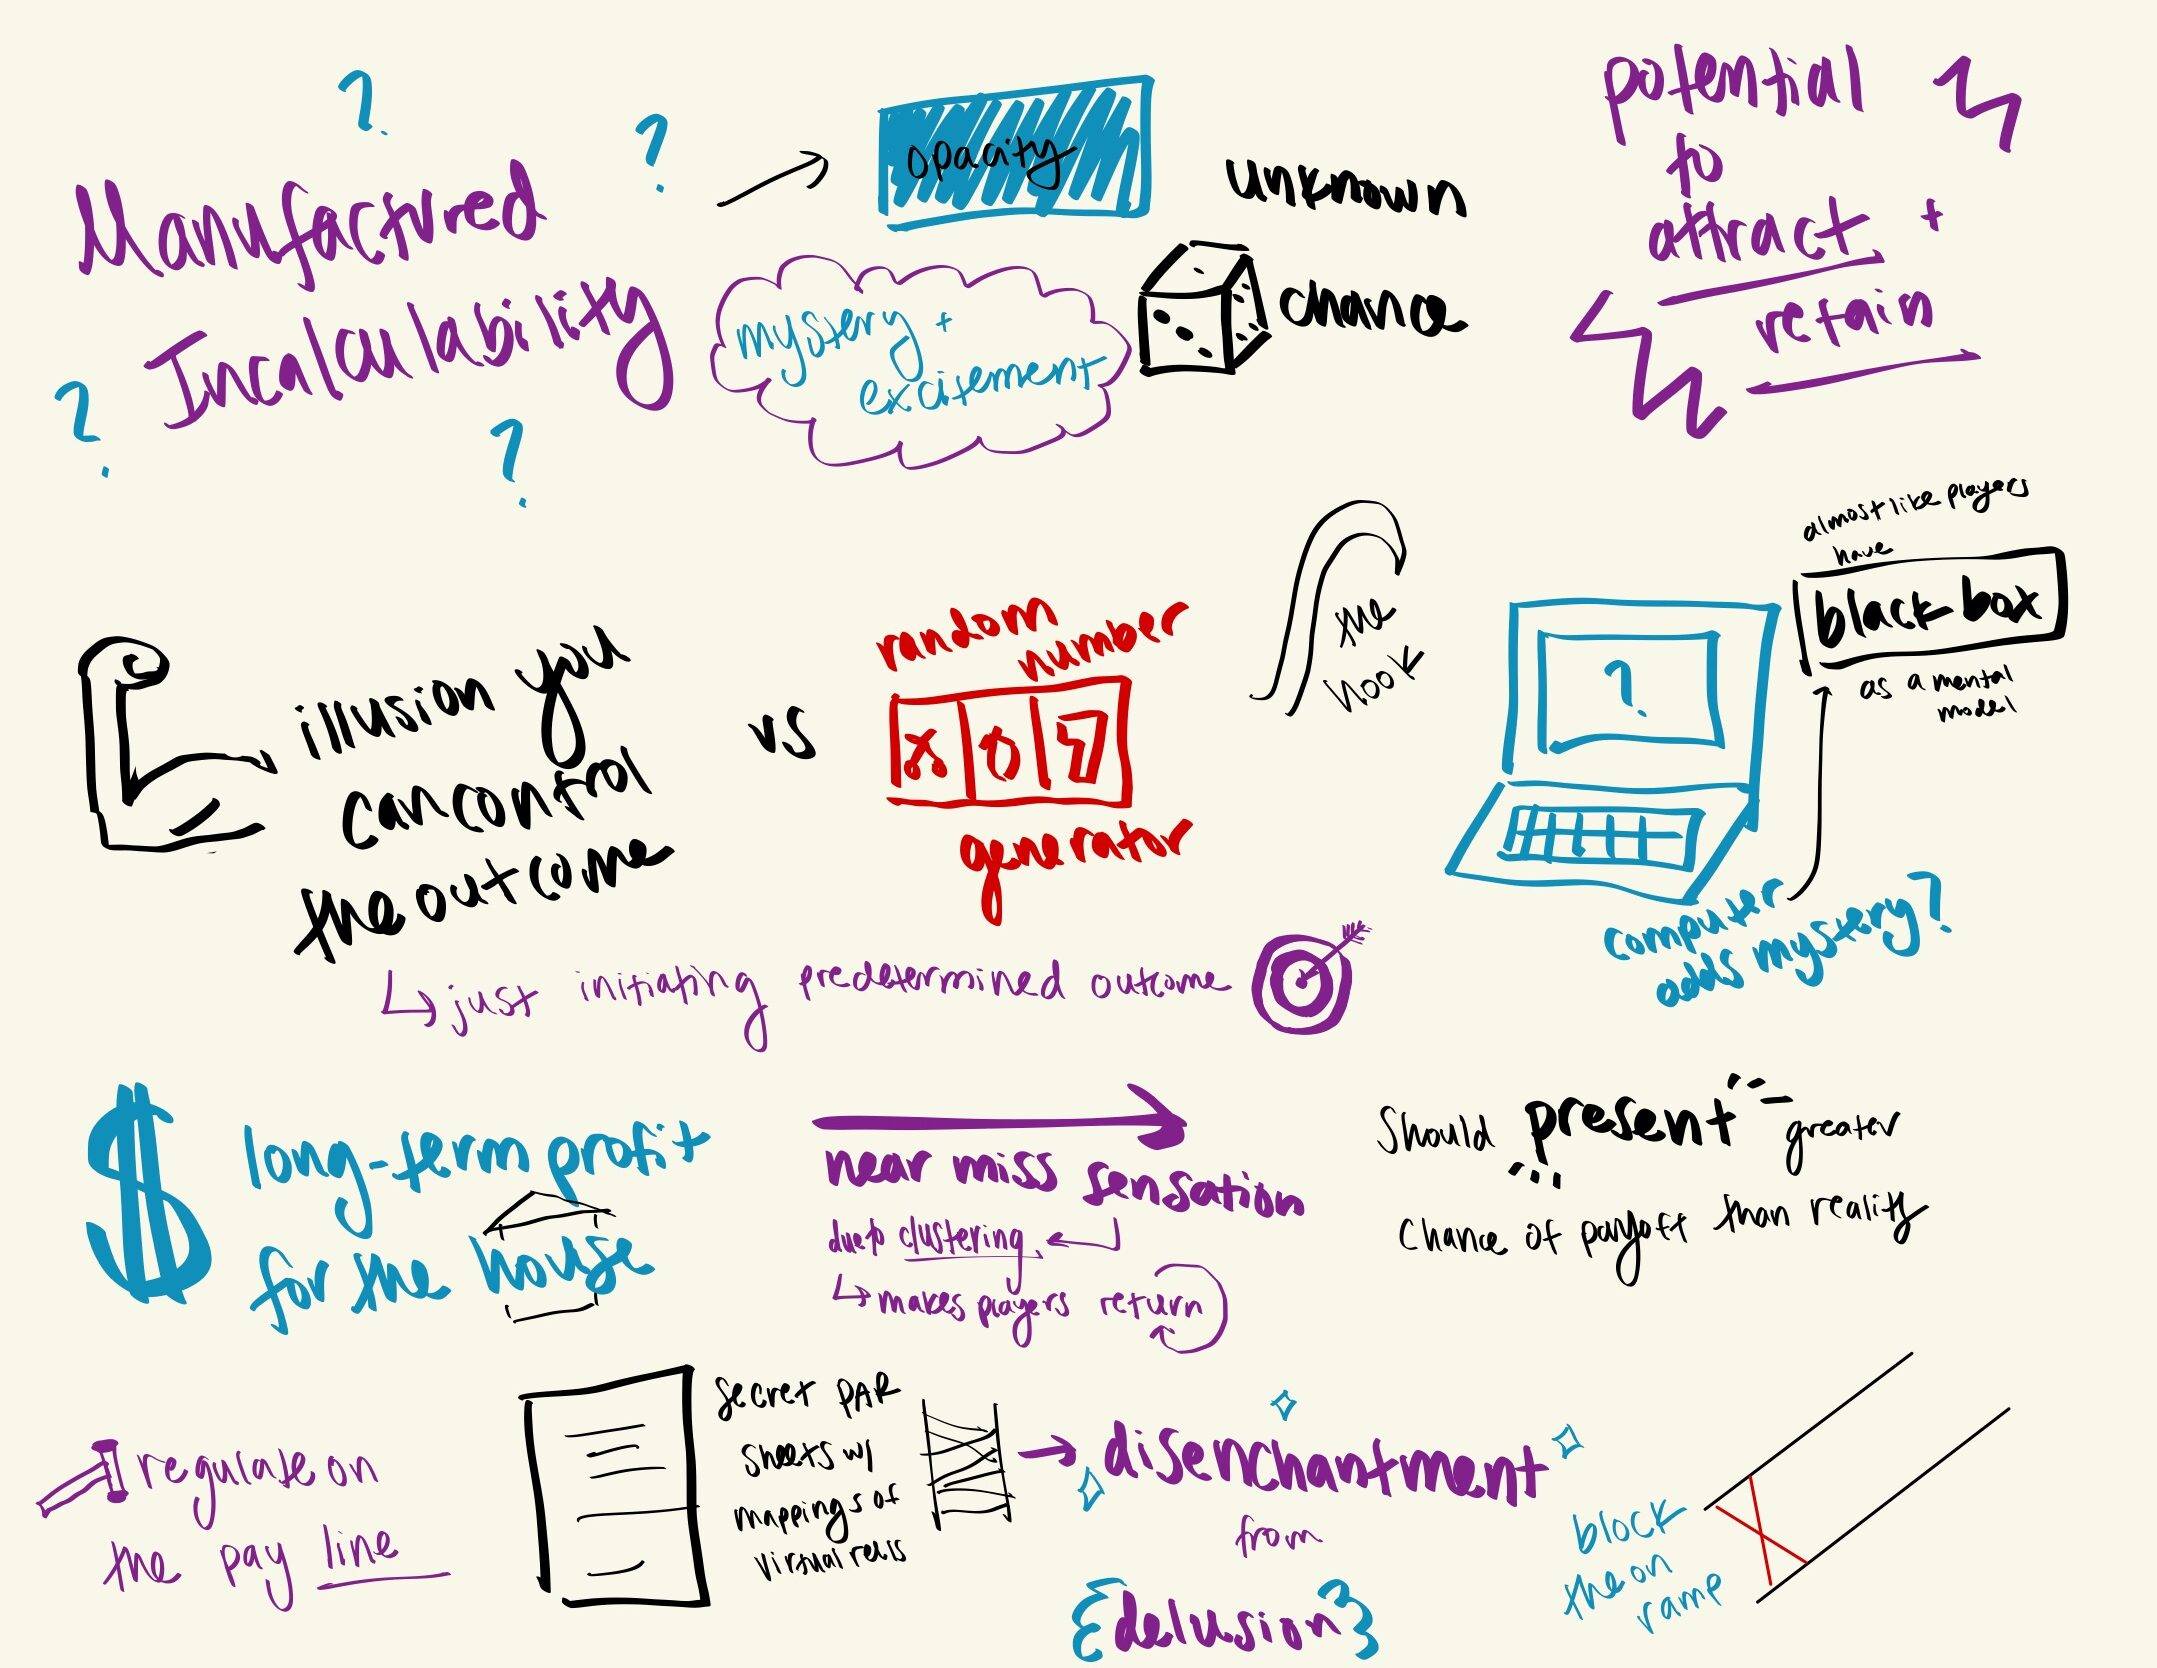 ?
?
Manufactured
Incalculability
?
?
opacity
mystery +
excitement
unknown
chance
potential
to
attract +
retain
illusion you
can control
the outcome
vs
random
number
X 0 7
generator
the
hook
almost like players
have
black box
as a mental
model
?
computer
adds mystery?
↳ just initiating predetermined outcome
$
long-term profit
for the house
near miss sensation
due to clustering
↳ makes players return
Should present greater
chance of payoff than reality
regulate on
the pay line
secret PAR
sheets w/
mappings of
virtual reels
→ disenchantment
from
{delusion}
block
the on
ramp